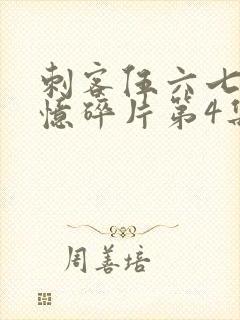 刺客伍六七
憶碎片第4集
周善培